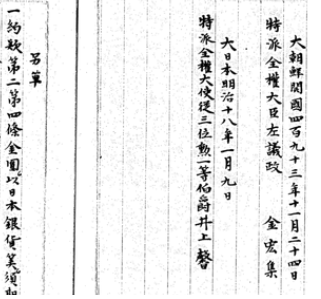 大朝鮮開國四百九十三年十一月二十四日
特派全權大臣左議政 金宏集
大日本明治十八年一月九日
特派全權大使從三位勲一等伯爵井上馨
另單
一約款第二第四條金圓以日本銀貨算須